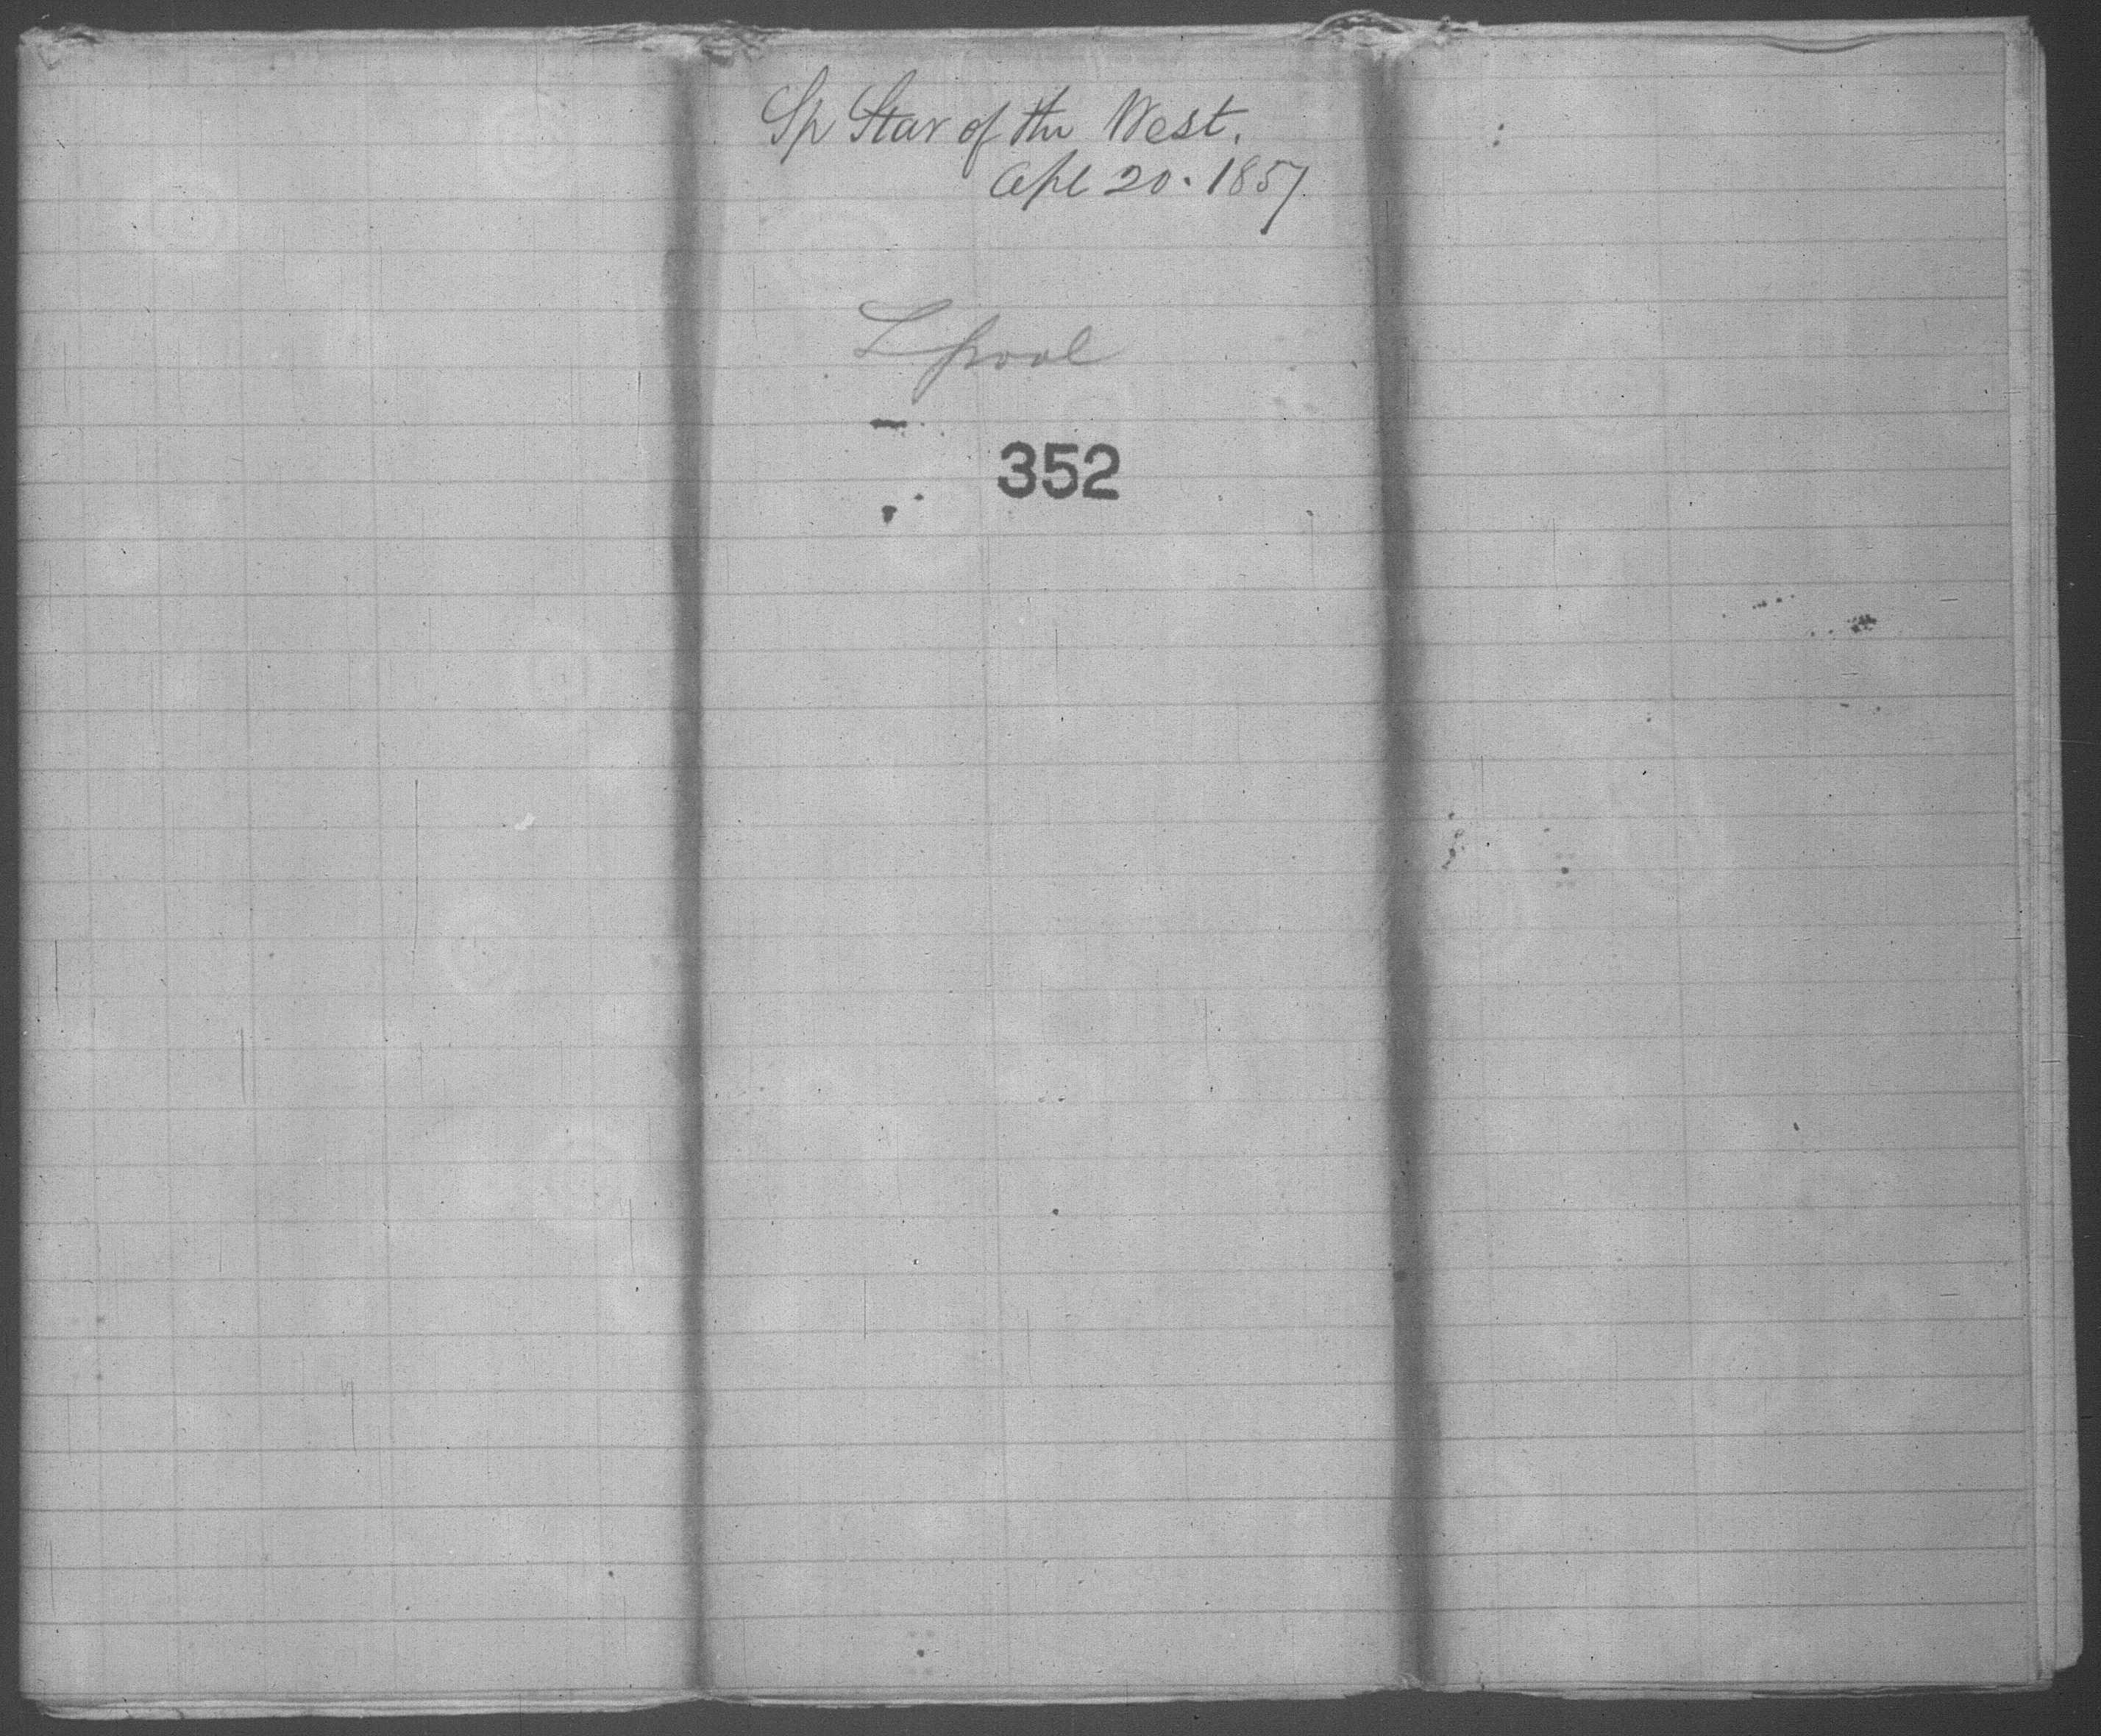 Sp Star of the West.
Apl 20. 1857
Lpool
352